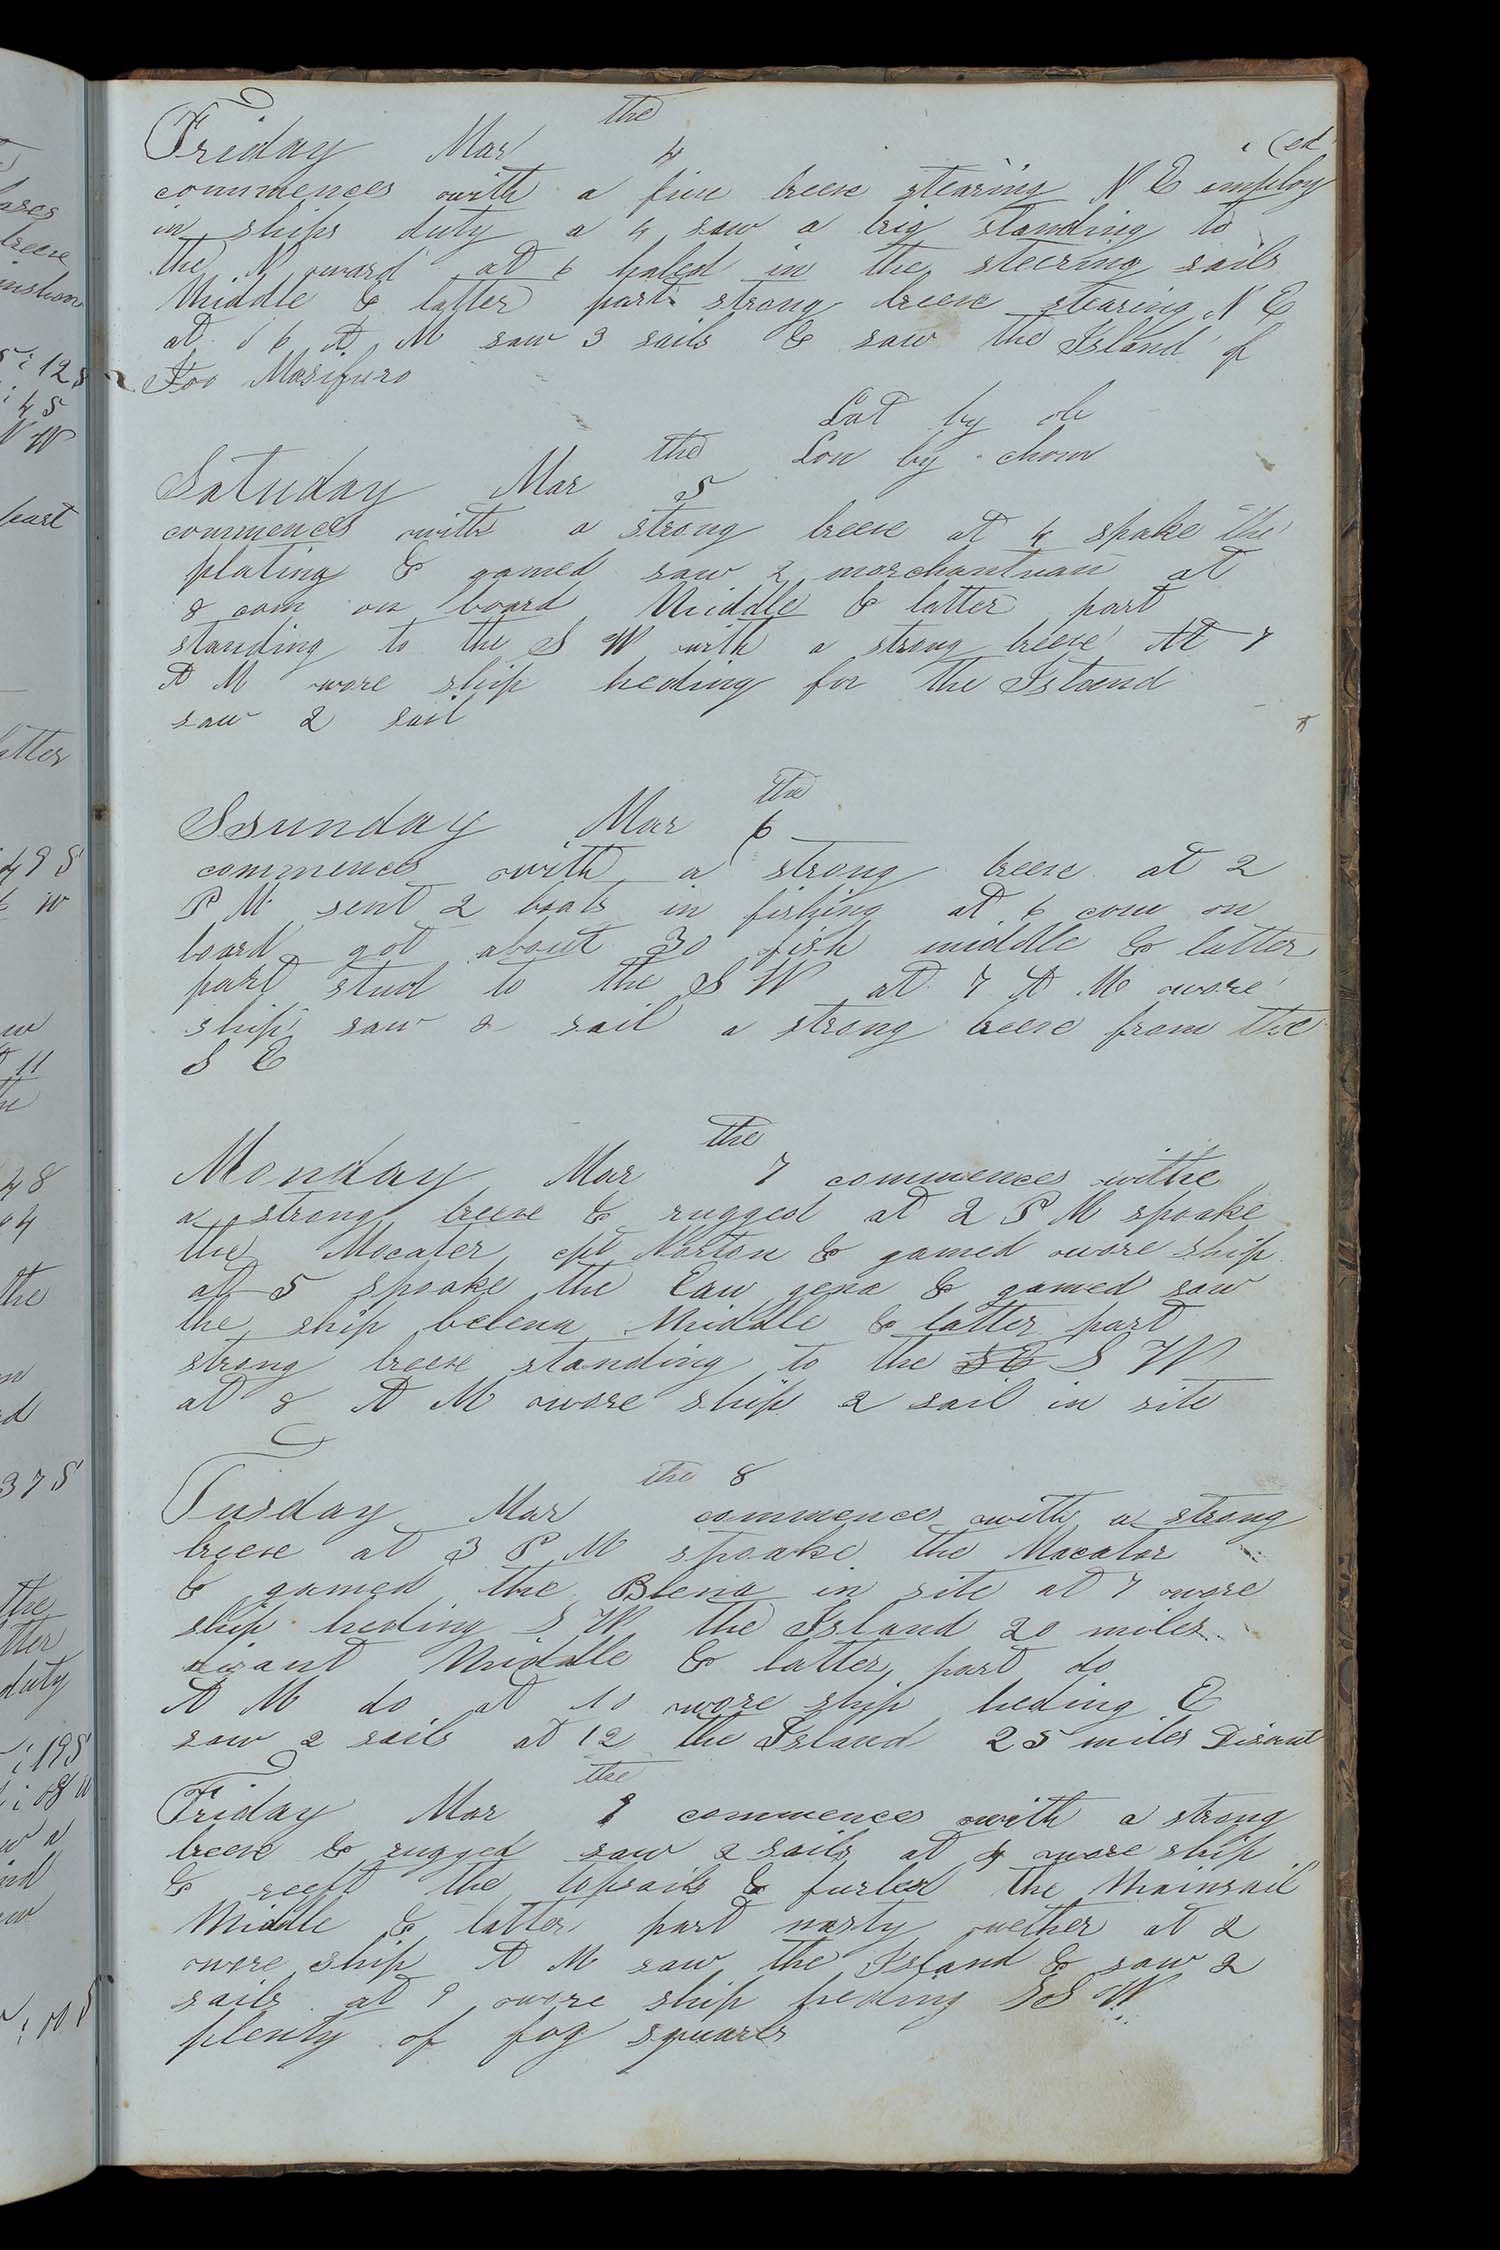 Friday Mar the 4
commences with a fine breese stearing N E employ (ed
in ships duty a 4 saw a brig standing to
the N ward at 6 haled in the steering sails
Middle & latter part strong breese stearing N E
at 6 A M saw 3 sails & saw the Island of
Foo Masifuro
Lat by ob
Lon by chron
Satuday Mar the 5
commences with a strong breese at 4 spoke the
plating & gamed saw 2 marchantman at
8 com on board Middle & latter part
standing to the S W with a strong breese At 7
A M wore ship heding for the Istand
saw 2 sail
Ssunday Mar the 6
commences with a strong breese at 2
P M sent 2 boats in fishing at 6 com on
board got about 30 fish middle & latter
part stud to the S W at 7 A M wore
ship saw 2 sail a strong breese from the
S E
Monday Mar the 7 commences withe
a strong breese & rugged at 2 P M spoake
the Mocater cpt Norton & gamed wore ship
at 5 spoake the Eau gena & gamed saw
the ship belena Middle & latter part
strong breese standing to the S E S W
at 8 A M wore ship 2 sail in site
Tusday Mar the 8 commences with a strong
breese at 3 P M spoake the Mocator
& gamed the Blena in site at 7 wore
ship heding S W the Island 20 miles
disant Middle & latter part do
A M do at 10 wore ship heding E
saw 2 sails at 12 the Island 25 miles Disant
Friday Mar the 9 commences with a strong
breese & rugged saw 2 sails at 4 wore ship
& reeft the topsails & furled the Mainsail
Middle & latter part nasty wether at 2
wore ship A M saw the Island & saw 2
sails at 9 wore ship heding S S W
plenty of fog squarls